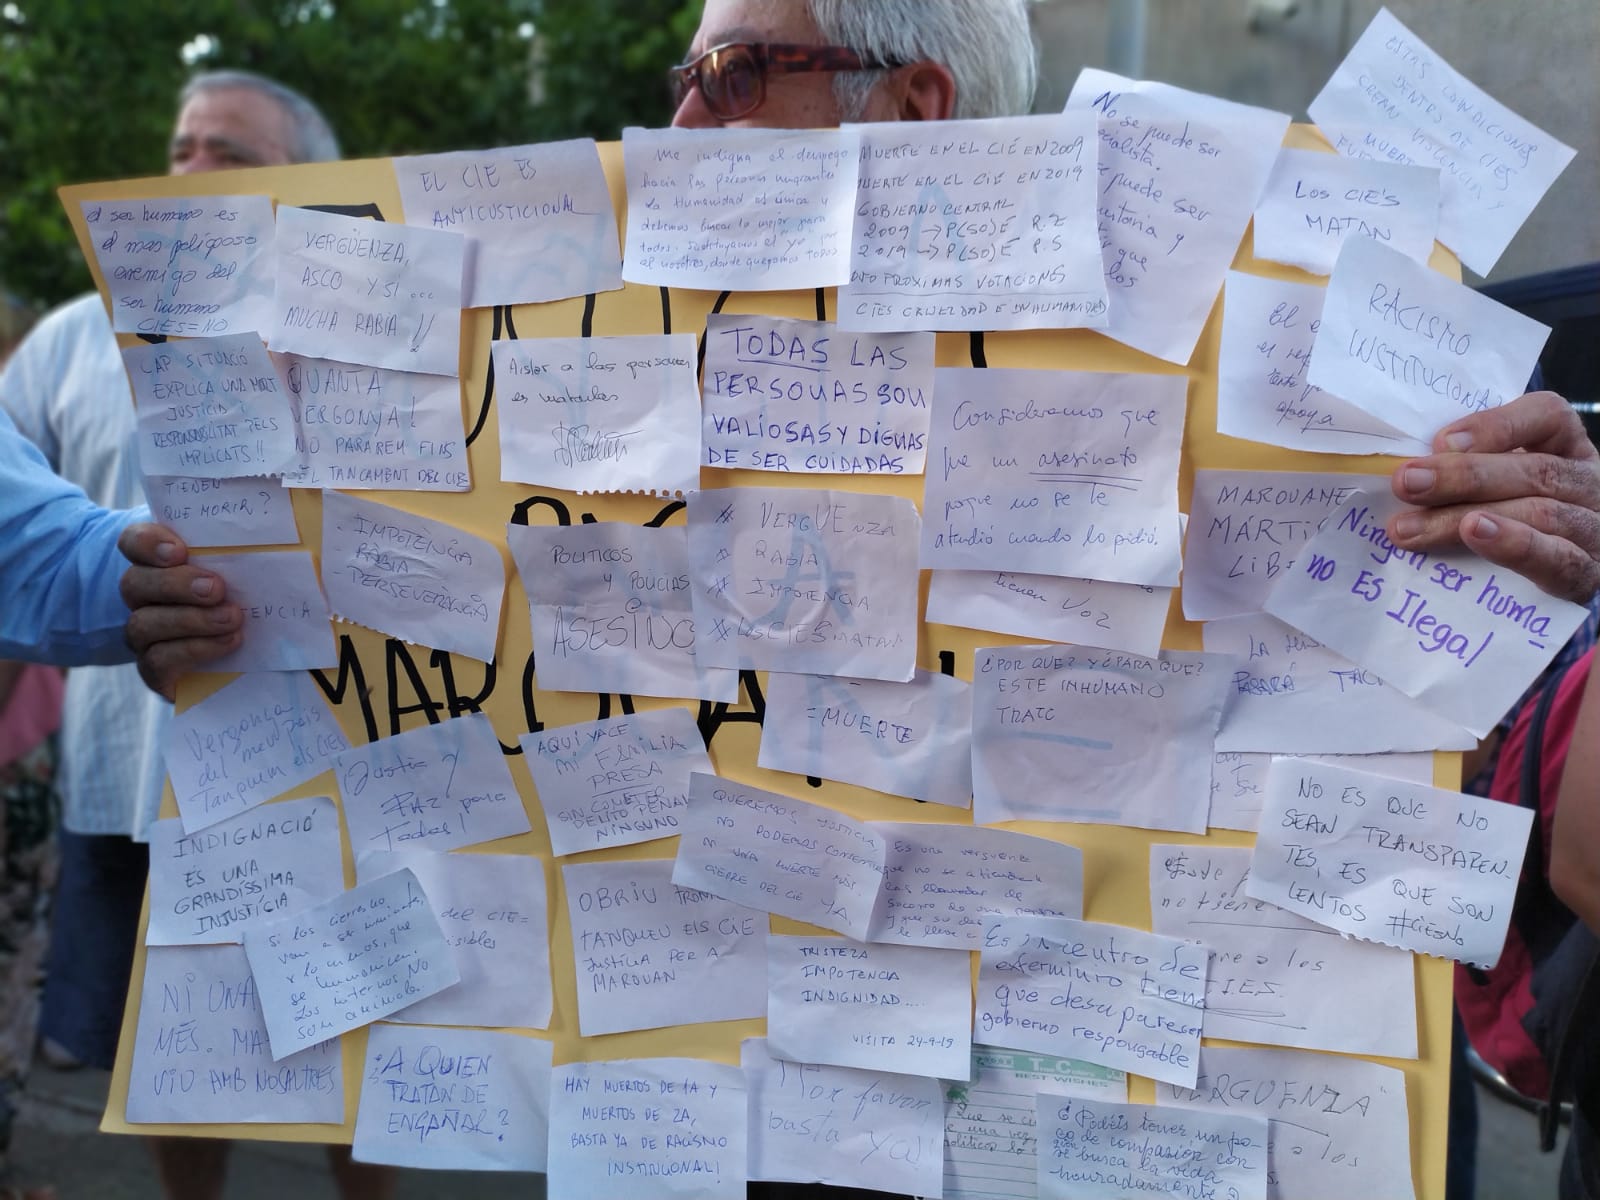 el ser humano es
el mas peligroso
enemigo del
ser humano
CIES=NO
VERGÜENZA,
ASCO. Y SI...
MUCHA RABIA!!
EL CIE ES
ANTICUSTICIONAL
Me indigna el despego
hacia las personas migrantes
La Humanidad es única y
debemos buscar lo mejor para
todos. Sustituyamos el "yo" por
el nosotros, donde quepamos todos
MUERTE EN EL CIE EN 2009
MUERTE EN EL CIE EN 2019
GOBIERNO CENTRAL
2009 → P(SO)E R.Z
2019 → P(SO)E P.S
PROXIMAS VOTACIONES
CIES CRUELDAD E INHUMANIDAD
No se puede ser
puede ser
y
que
los
ESTAS CONDICIONES
DENTRO DE CIES
CREAN VIOLENCIA Y
MUERT
LOS CIE'S
MATAN
RACISMO
INSTITUCIONAL
El
el
apoya
CAP SITUACIÓ
EXPLICA UNA MORT
JUSTÍCIA I
RESPONSABILITAT PELS
IMPLICATS!!
QUANTA
VERGONYA!
NO PARAREM FINS
EL TANCAMENT DEL CIE
Aislar a las personas
es matarles
TODAS LAS
PERSONAS SON
VALIOSAS Y DIGNAS
DE SER CUIDADAS
Consideramos que
fue un asesinato
porque no se le
atendió cuando lo pidió.
tienen voz
TIENEN
QUE MORIR?
TENCIA
IMPOTÈNCIA
RÀBIA
PERSEVERANÇA
POLITICOS
Y POLICIAS
ASESINO
# VERGUENZA
# RABIA
# IMPOTENCIA
# LOS CIES MATAN!
MAROUANE
MÁRTI
LIB
Ningún ser huma
no ES Ilegal
¿POR QUE? Y ¿PARA QUE?
ESTE INHUMANO
TRATO
LA
PASARÁ
=MUERTE
MAROUA
Vergonya
del meu país
Tanquem els CIEs
¡Justicia y
PAZ para
Todos!
AQUI YACE
MI FAMILIA
PRESA
SIN COMETER
DELITO PENAL
NINGUNO
QUEREMOS JUSTICIA,
NO PODEMOS CONSENTIR
NI UNA MUERTE MÁS.
CIERRE DEL CIE YA,
Es una verguenza
que no se atiendan
las llamadas de
socorro de una persona
y que su
le lleve a
NO ES QUE NO
SEAN TRANSPAREN-
TES, ES QUE SON
LENTOS #CIESNO
INDIGNACIÓ
ÉS UNA
GRANDÍSSIMA
INJUSTÍCIA
Si los cierres no
van a ser inminente,
x lo menos, que
se humanicen.
Los internos NO
son animales.
del CIE=
OBRIU
TANQUEU ELS CIE
JUSTÍCIA PER A
MAROUAN
TRISTEZA
IMPOTENCIA
INDIGNIDAD....
VISITA 24-9-19
Es un centro de
exterminio tiene
que desaparecer
gobierno responsable
no tiene
a los
C.I.E.S.
NI UNA
MÉS. MA
VIU AMB NOSALTRES
¿A QUIEN
TRATAN DE
ENGAÑAR?
HAY MUERTOS DE 1A Y
MUERTOS DE 2A,
BASTA YA DE RACISMO
INSTITUCIONAL!
Por favor,
basta ya!
BEST WISHES
Que se
una vez
políticos
VERGUENZA"
a los
¿Podéis tener un po-
co de compasión con
quien
se busca la vida
honradamente?